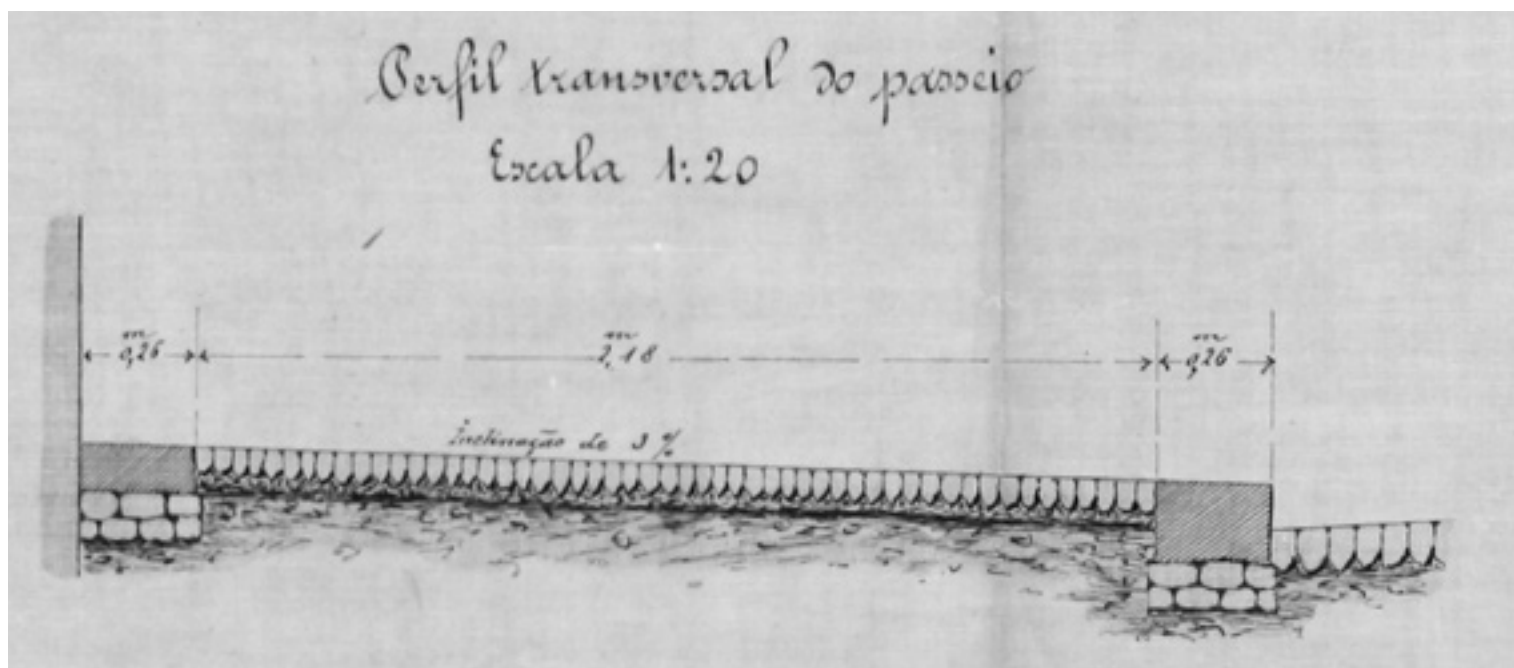 Perfil transversal do passeio
Escala 1:20
m
0,26
m
2,18
m
0,26
Inclinação de 3 %